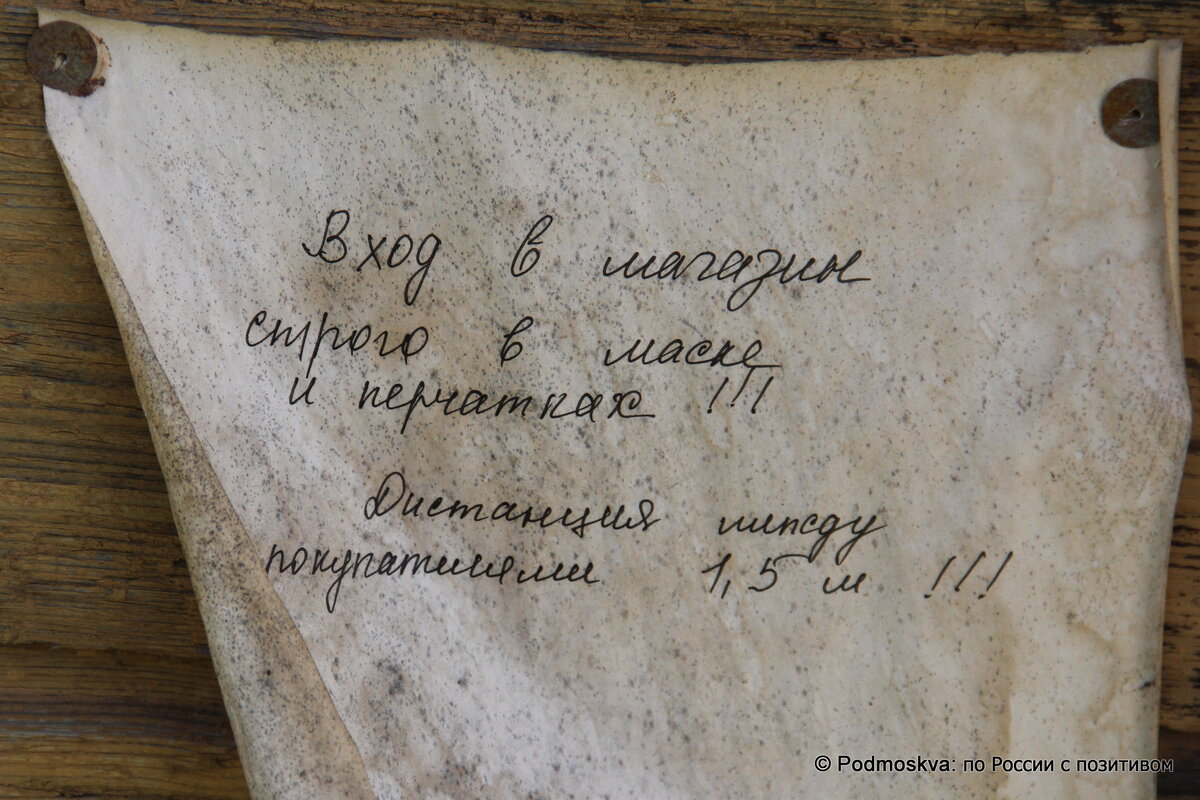 Вход в магазин
строго в маске
и перчатках !!!
Дистанция между
покупателями 1,5 м !!!
© Podmoskva: по России с позитивом